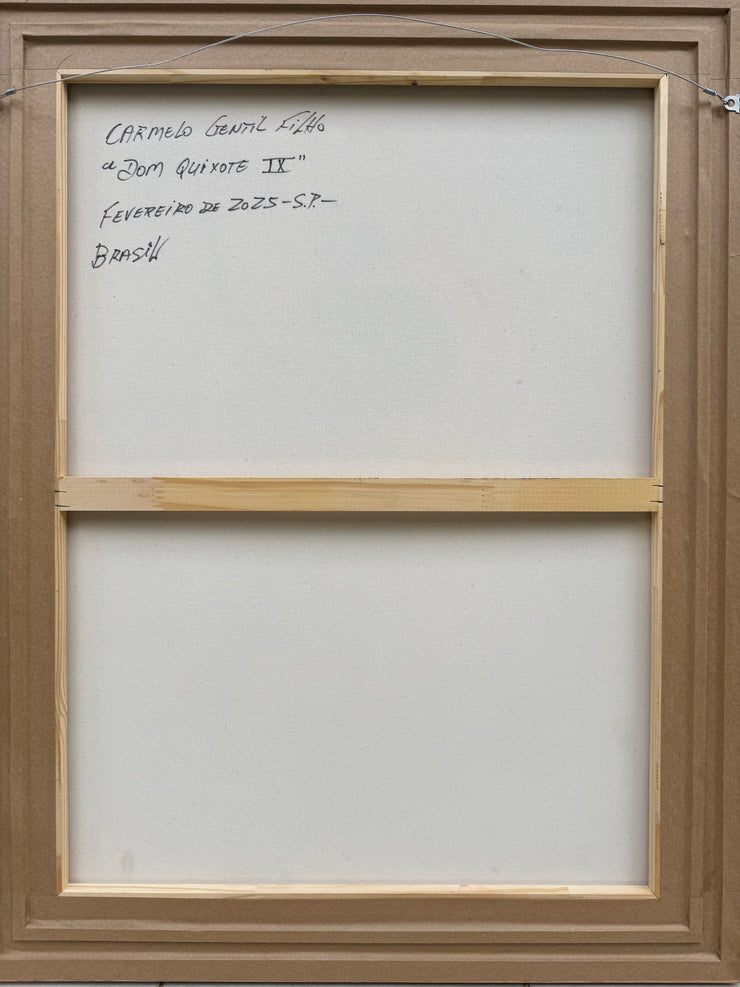 CARMELO GENTIL FILHO
"DOM QUIXOTE IX"
FEVEREIRO DE 2025-S.P.-
BRASIL